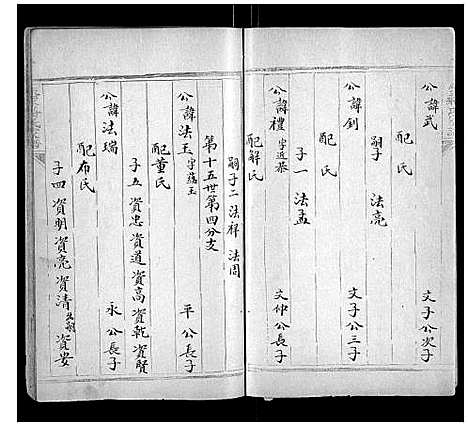 公諱武 文子公次子
配 氏
嗣子 法亮
公諱釗 文子公三子
配 氏
子一 法孟
公諱禮 字近恭 文仲公長子
配解氏
嗣子二 法祥 法周
第十五世第四分支
公諱法玉 字蘊玉 平公長子
配董氏
子五 資忠 資道 資高 資乾 資賢
公諱法瑞 永公長子
配布氏
子四 資明 資亮 資清 資安